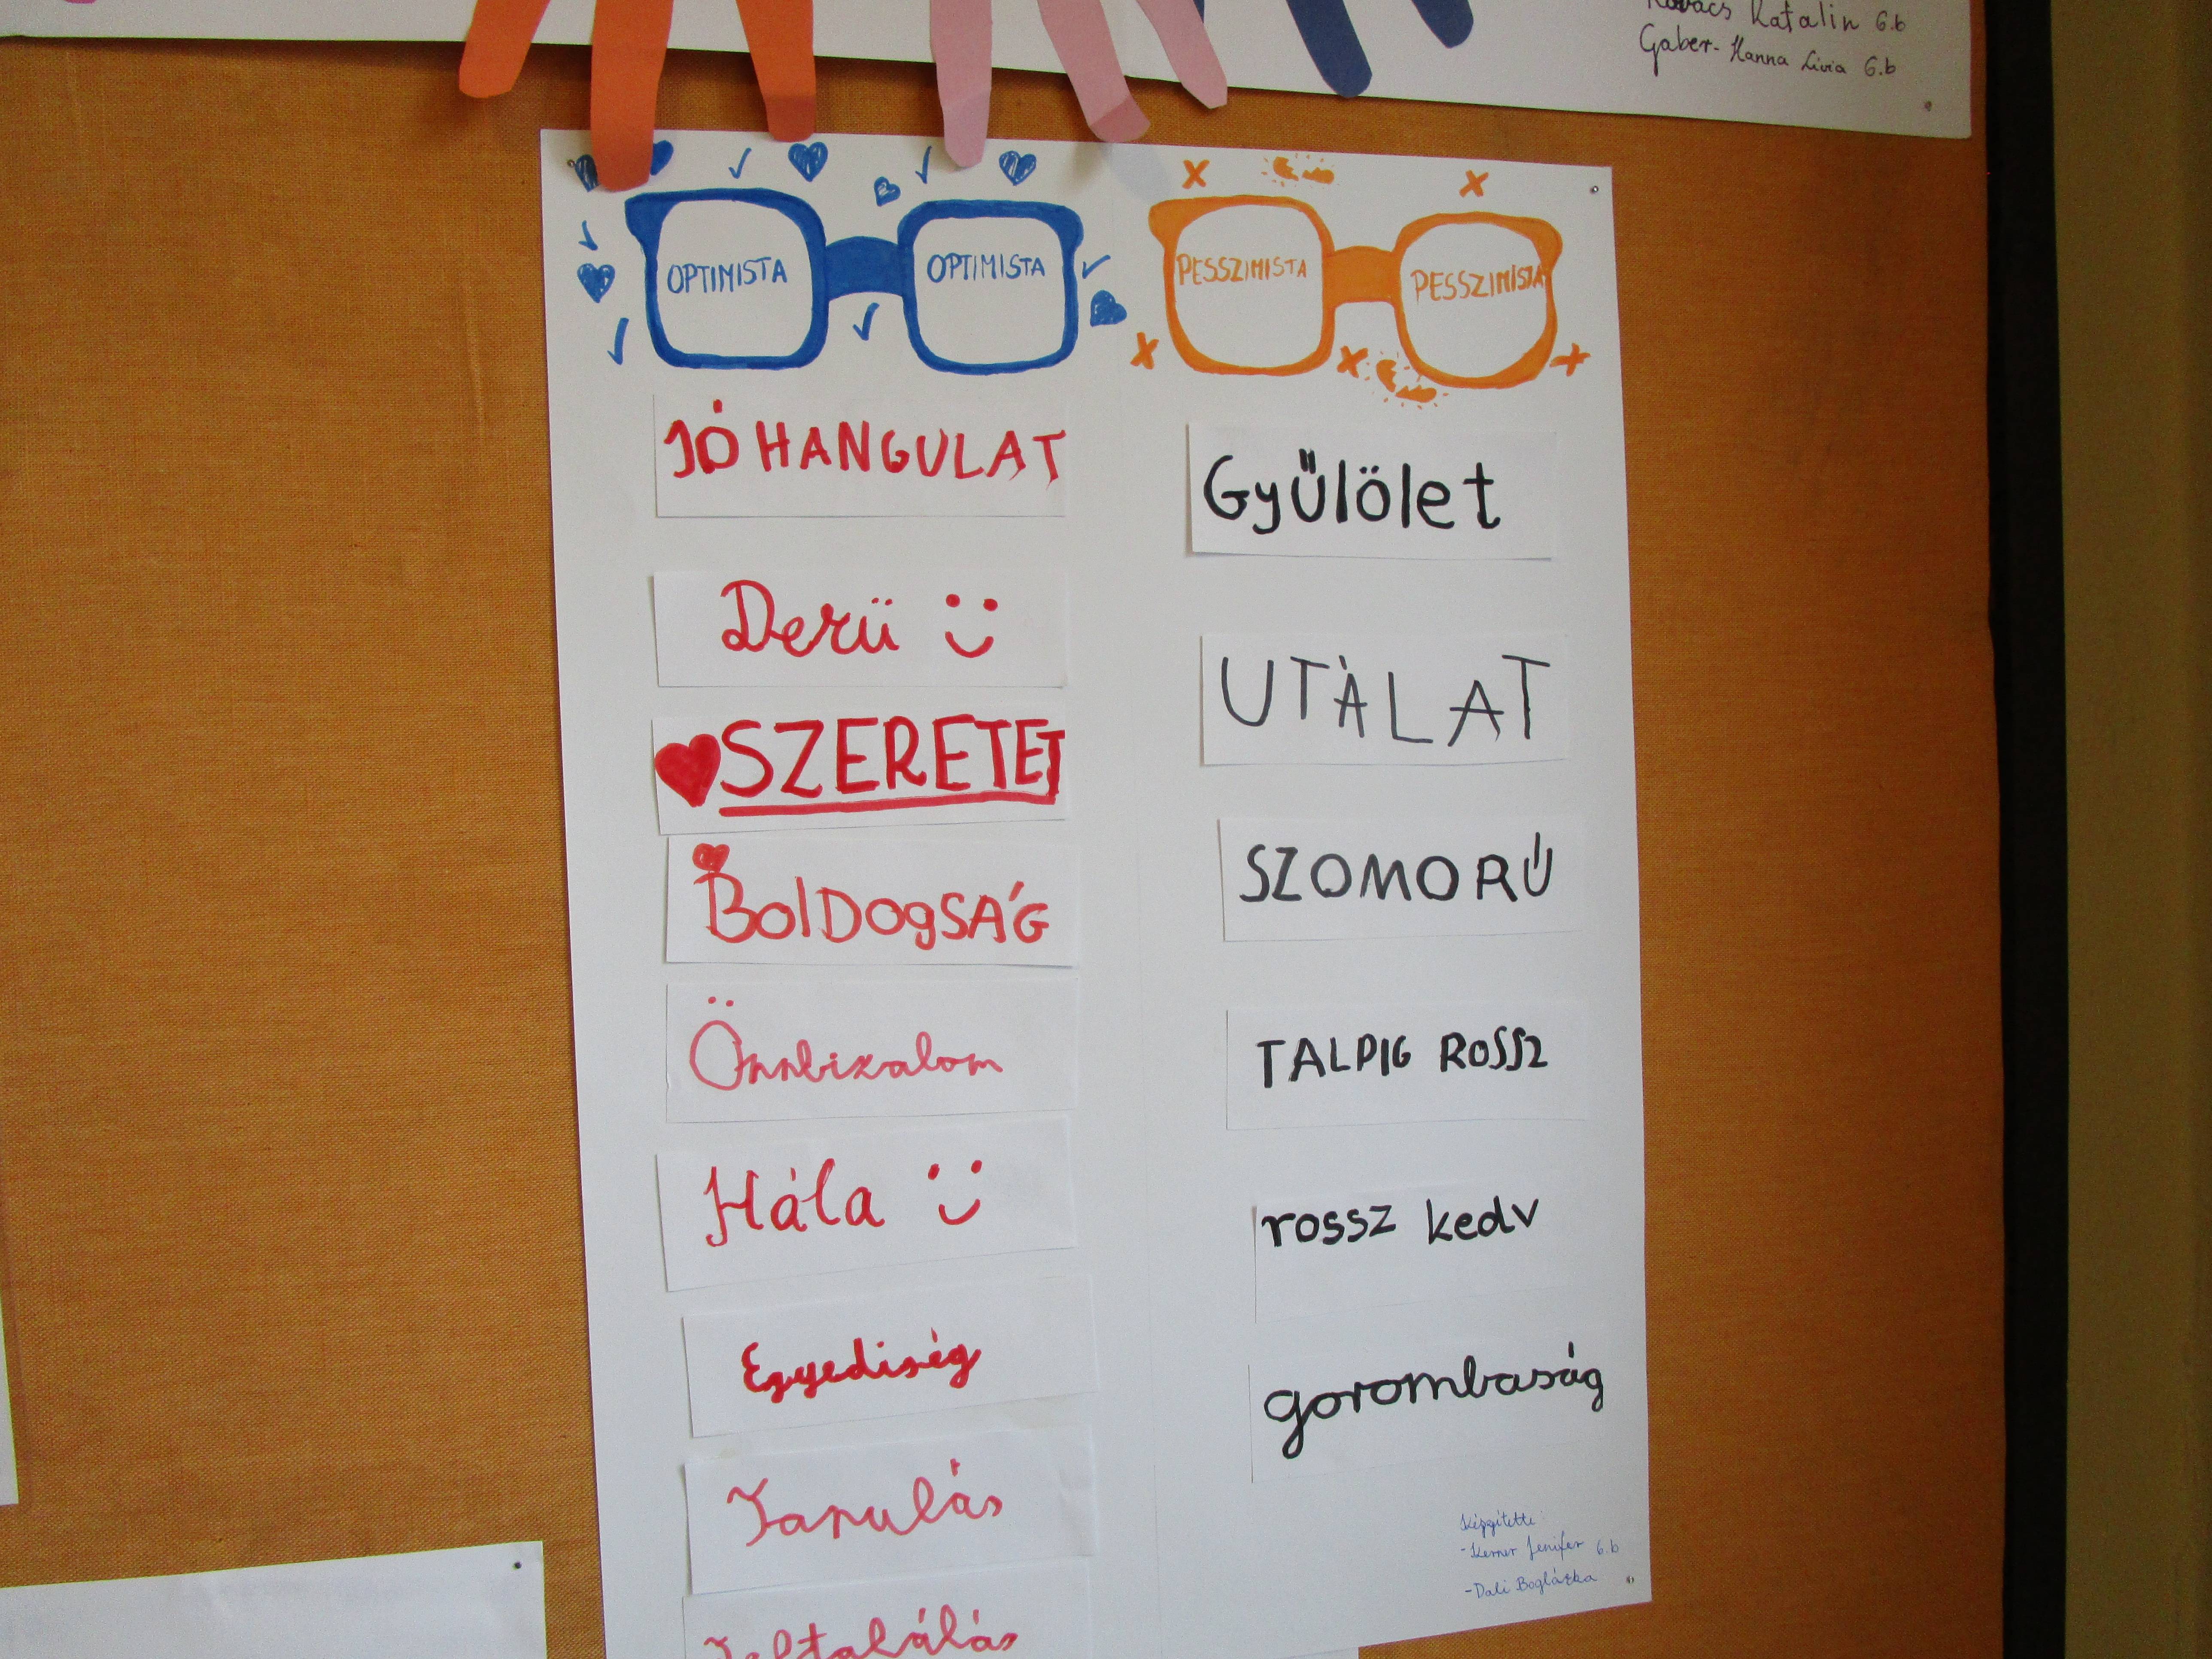 Kovács Katalin 6.b
Gaber-Hanna Lívia 6.b
OPTIMISTA OPTIMISTA
PESSZIMISTA PESSZIMISTA
JÓ HANGULAT
Derü
SZERETET
BolDogSÁG
Önnbizalom
Hála
Egyediség
Tanulás
Gyűlölet
UTÀLAT
SZOMORÚ
TALPIG ROSSZ
rossz kedv
gorombaság
Készítette:
-Kerner Jenifer 6.b
-Dali Boglárka